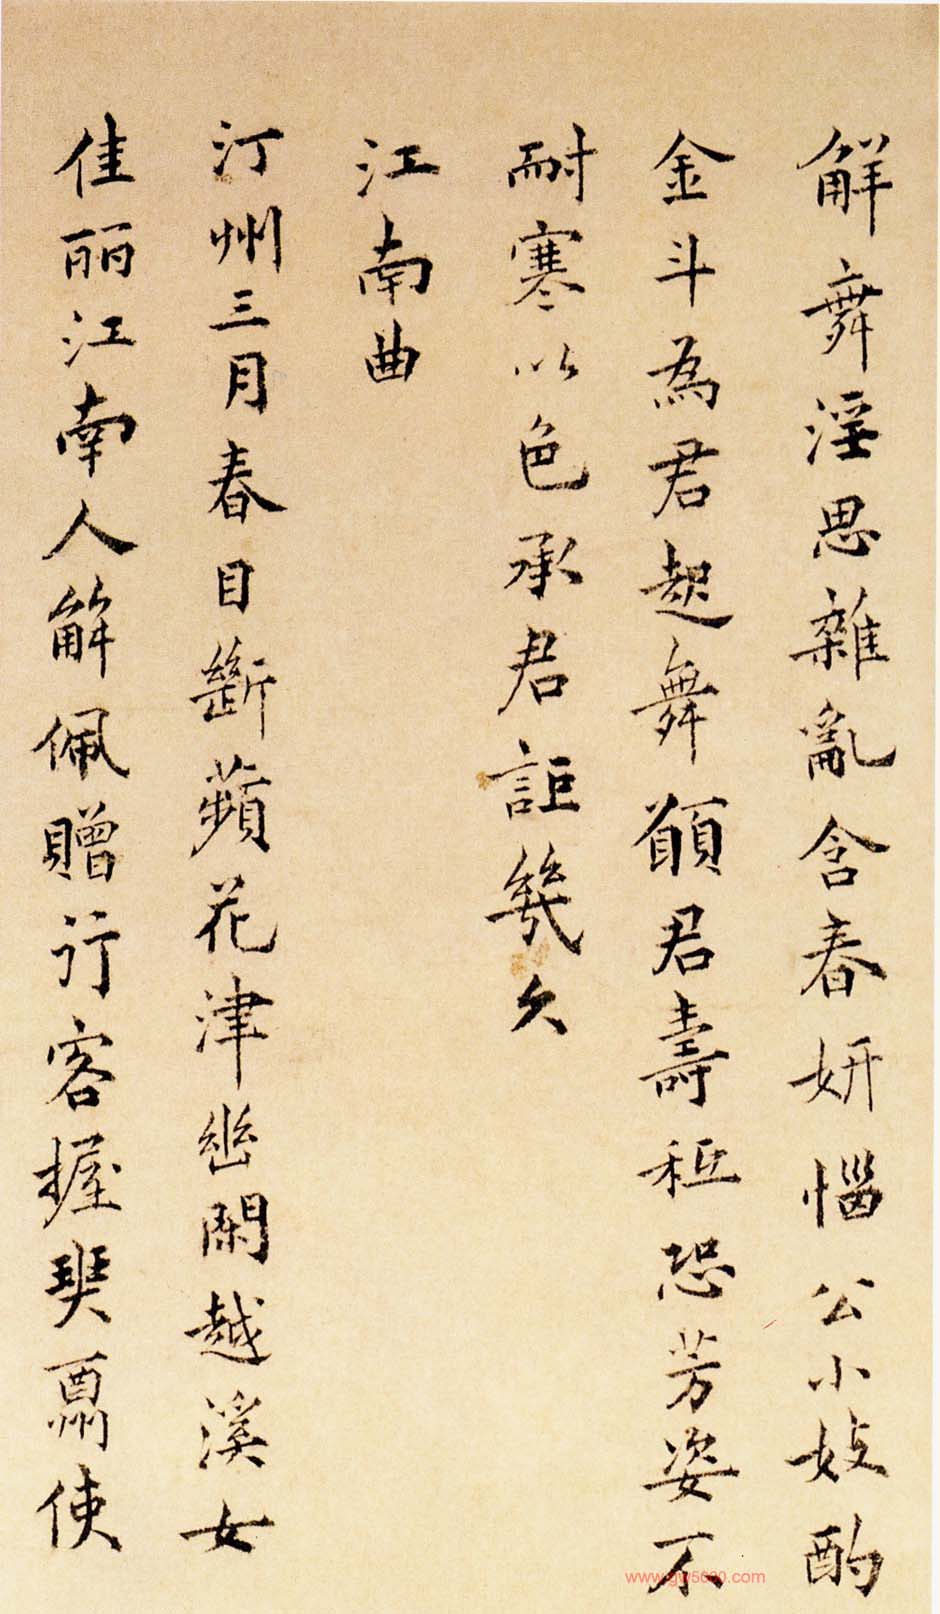 解舞淫思雜亂含春妍惱公小妓酌
金斗為君起舞願君壽秪恐芳姿不
耐寒以色承君詎幾久
江南曲
汀州三月春目斷蘋花津幽閑越溪女
佳丽江南人解佩贈行客握使
www.gw5000.com